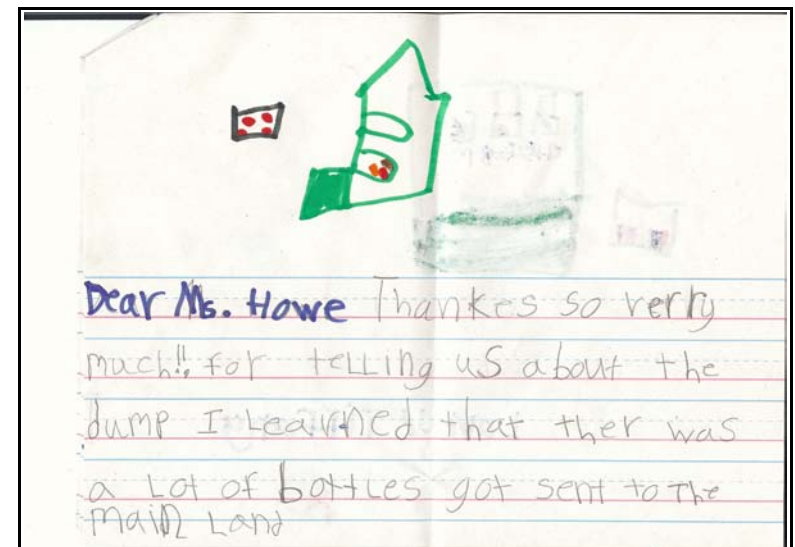 Dear Ms. Howe Thankes so verry
much!! for telling us about the
dump I Learned that ther was
a Lot of bottles got sent to The
main Land